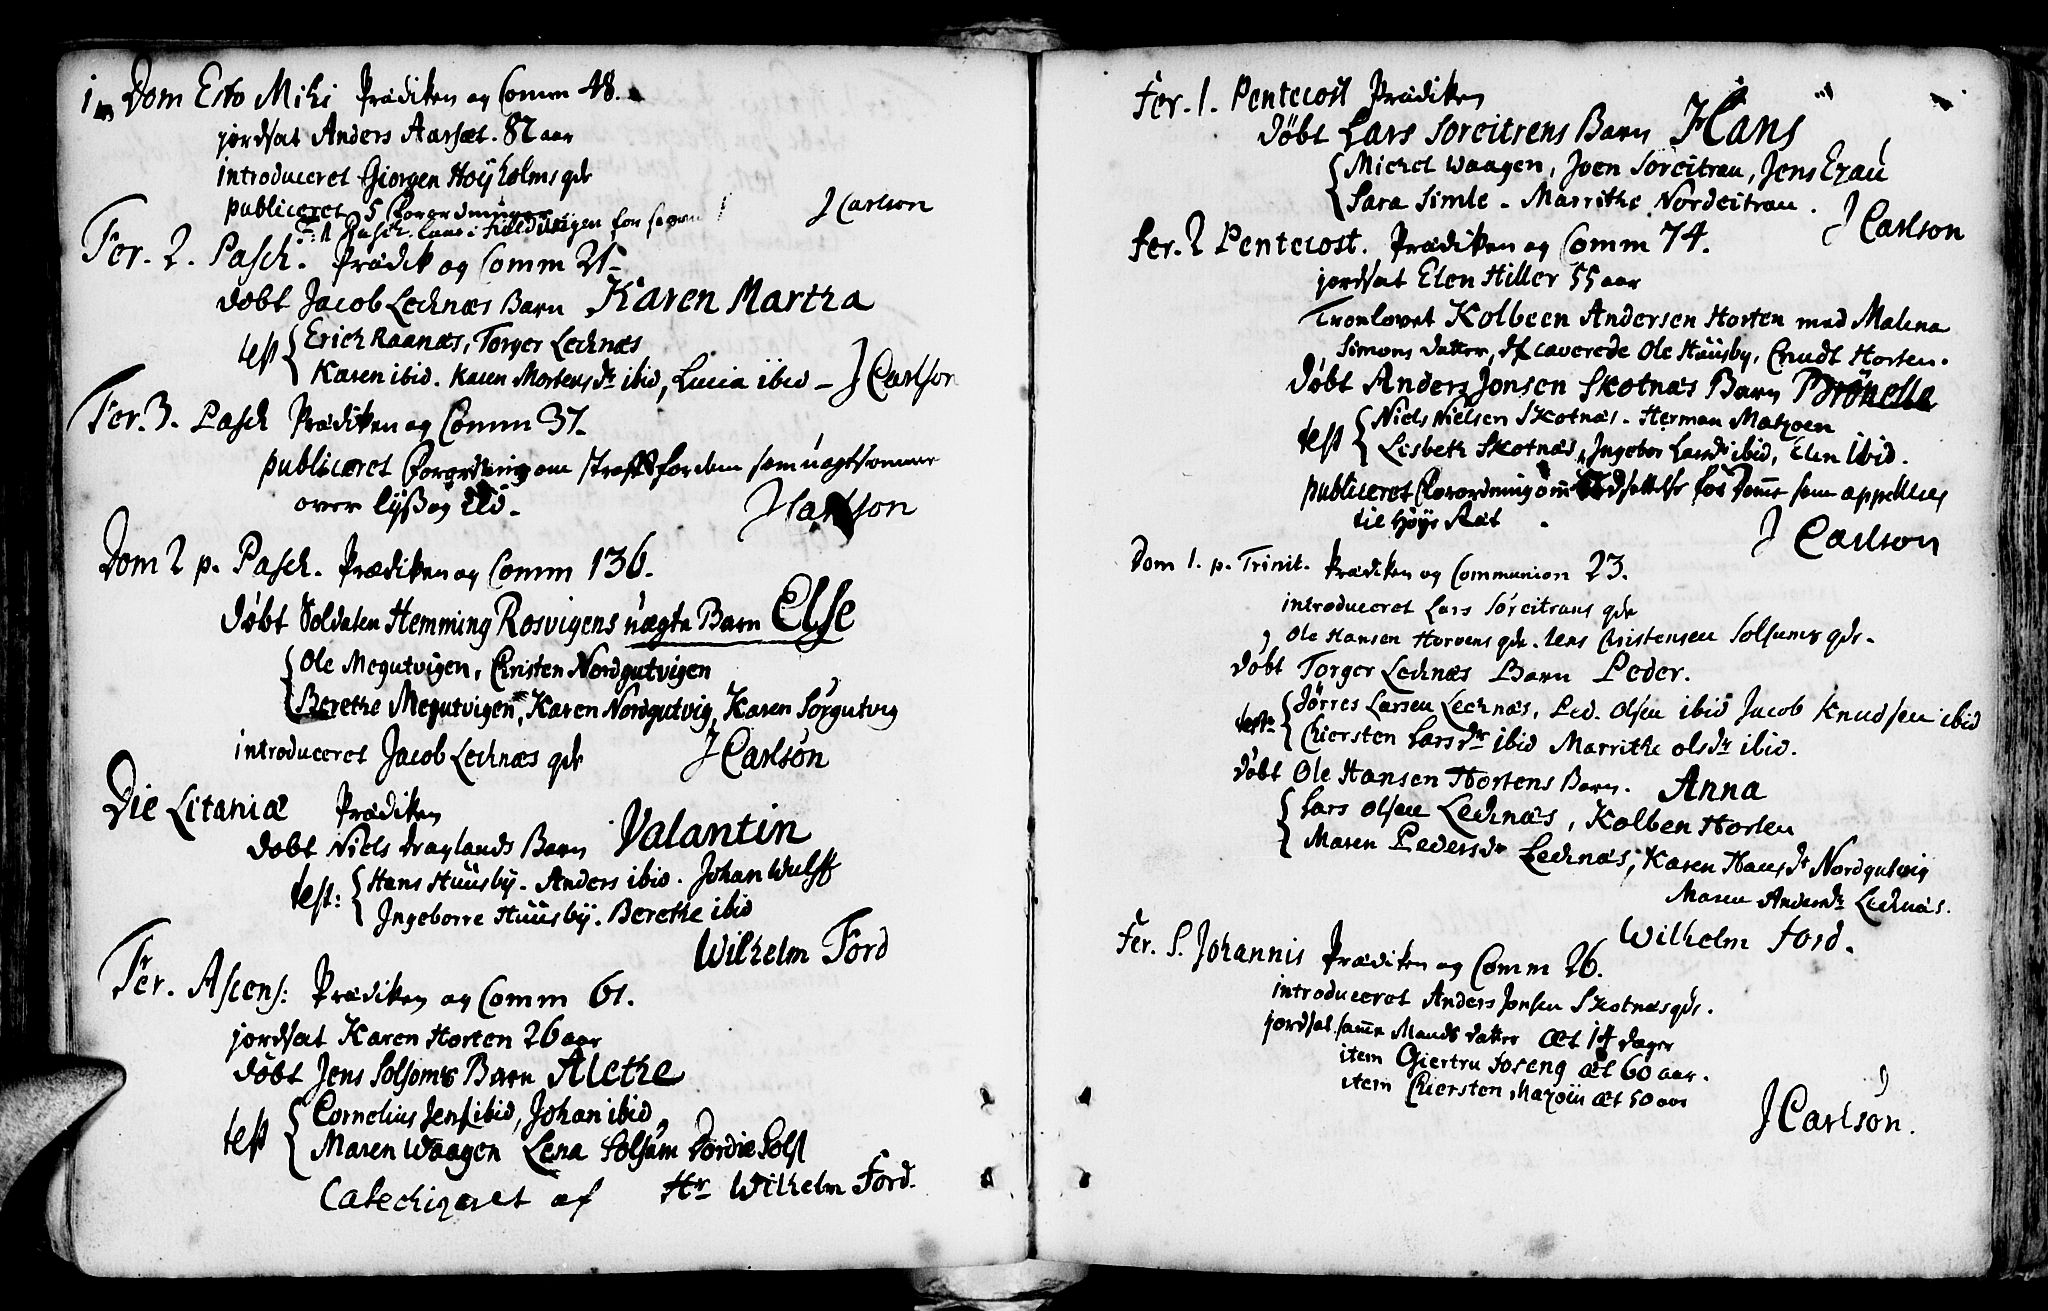 Dom Esto Mihi Prædiken og Comm 48.
jordsat Anders Aarsæt. 82 aar
introduceret Giørgen Høÿholms qde
publiceret 5 Forordninger
J Carlson
F: 1 Pasch. for
Fer. 2. Pasch. Prædik og Comm 21
døbt Jacob Lecknæs Barn Karen Martha
test Erich Raanæs, Torger Lecknæs
Karen ibid. Karen Mortensdr ibid, Lucia ibid – J Carlson
Fer. 3. Pasch Prædiken og Comm 37.
publiceret Forordning om straff for dem som uagtsomme
over lyß og Ild.
J Carlson
Dom 2 p. Pasch. Prædiken og Comm 136.
døbt Soldaten Hemming Rosvigens uægte Barn Else
Ole Megutvigen, Christen Nordgutvigen
Berethe Megutvigen, Karen Nordgutvig, Karen Sørgutvig
introduceret Jacob Lecknæs qde J Carlson
Die Litaniæ Prædiken
døbt Niels Draglands Barn Valantin
test: Hans Huusbÿ. Anders ibid. Johan Wulff
Ingeborre Huusbÿ. Berethe ibid
Wilhelm Ford
Fer. Ascens: Prædiken og Comm 61.
jordsat Karen Horten 26 aar
døbt Jens Solsoms Barn Alethe
test Cornelius Jens ibid, Johan ibid,
Maren Waagen Lena Solsum Dordie Sols
Catechizeret af Hr Wilhelm Ford.
Fer. 1. Pentecost Prædiken
døbt Lars Soreitrens Barn Hans
Michel Waagen, Joen Soreitran, Jens Ezau
Sara Simle - Marrithe Nordeitran.
J Carlson
Fer. 2 Pentecost. Prædiken og Comm 74.
jordsat Elen Hiller 55 aar
Troelovet Kolbeen Andersen Horten med Malena
Simons datter, de caverede Ole Huusby, Cnudt Horten.
døbt Anders Jonsen Skotnæs Barn Brønelle
test Niels Nielsen Skotnæs. Herman Matzoen
Lisbeth Skotnæs, Ingebor Larsdr ibid, Elen ibid.
publiceret Forordning om for Domme som appelleres
til Høye Ræt.
J Carlson
Dom 1. p. Trinit. Prædiken og Communion 23.
introduceret Lars Sørcitrans qde
Ole Hansen Hortens qde. Jens Christensen Solsums qde.
døbt Torger Lecknæs Barn Peder.
test: Jørres Larsen Lecknæs, Ped. Olsen ibid Jacob Knudsen ibid
Chiersten Larsdr ibid Marrithe olsdr ibid.
døbt Ole Hansen Hortens Barn. Anna
Lars Olsen Lecknæs, Kolben Horten
Maren Pedersdr Lecknæs, Karen Hansdr Nordgutvig
Maren Andersdr Lecknæs.
Wilhelm Ford.
Fer. S. Johannis Prædiken og Comm 26.
introduceret Anders Jonsen Skotnæs qde.
jordsat samme Mands datter æt 14 dager
item Gjertru Foseng æt 60 aar.
item Chiersten Mazoiu æt 50 aar
J Carlson.